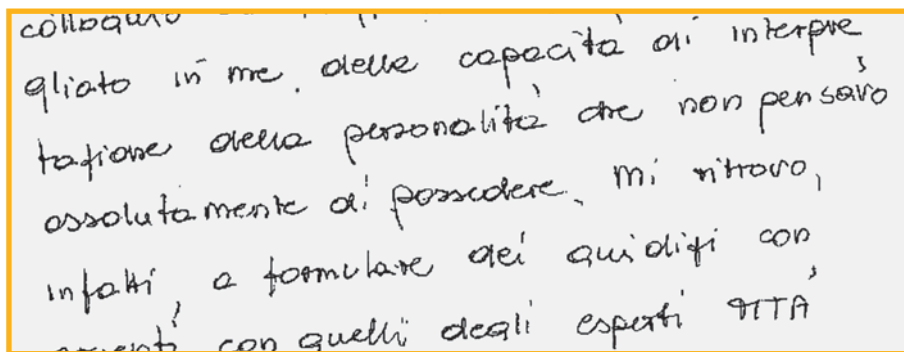 colloquio
gliato in me. delle capacità di interpre
tazione della personalità che non pensavo
assolutamente di possedere. Mi ritrovo,
infatti, a formulare dei giudizi con
con quelli degli esperti